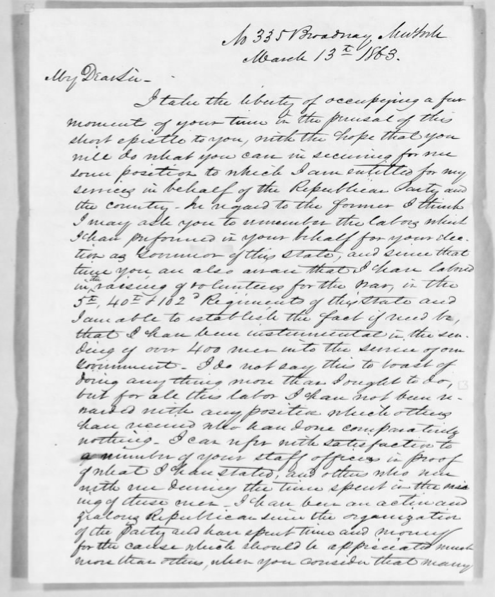 No 335 Broadway New York
March 13th 1863.
My Dear Sir -
I take the liberty of occupying a few
moments of your time in the perusal of this
short epistle to you, with the hope that you
will do what you can in securing for me
some position to which I am entitled for my
services in behalf of the Republican Party and
the country - In regard to the former I think
I may ask you to remember the labors which
I have performed in your behalf for your elec-
tion as Governor of this state, and since that
time you are also aware that I have labored
in the raising of volunteers for the war, in the
5th, 40th & 102d Regiments of this state and
I am able to establish the fact if need be,
that I have been instrumental in the sen-
ding of over 400 men into the service of our
Government - I do not say this to boast of
doing any thing more than I ought to do,
but for all this labor I have not been re-
warded with any position which others
have received who have done comparatively
nothing - I can refer with satisfaction to
a number of your staff officers in proof
of what I have stated, and others who were
with me during the time spent in the rais-
ing of these men - I have been an active and
zealous Republican since the organization
of the Party and have spent time and money
for the cause which should be appreciated much
more than others, when you consider that many